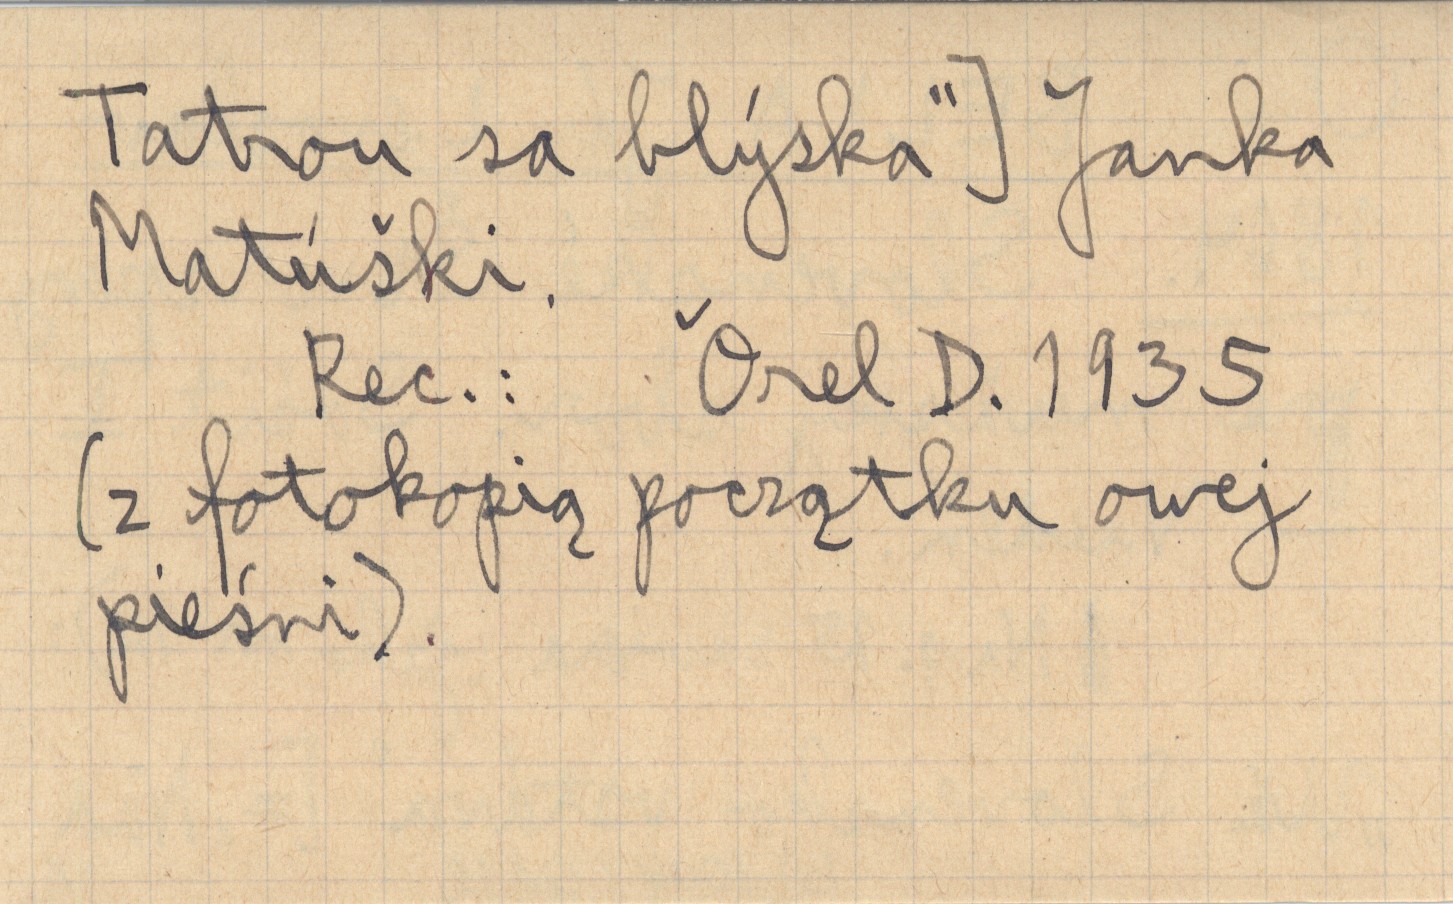 Tatrou sa blýska"] Janka
Matúški.
Rec.: Orel D. 1935
(z fotokopią początku owej
pieśni).